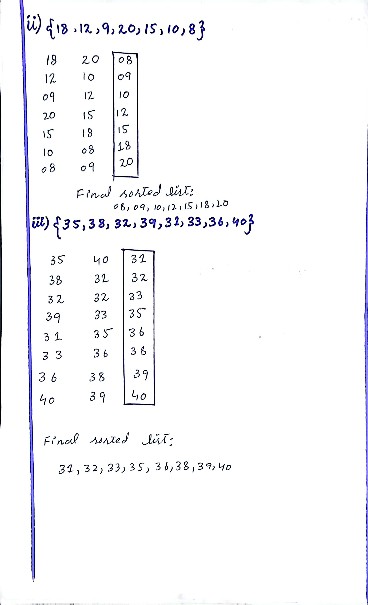 ii) {18, 12, 9, 20, 15, 10, 8}
18 20 08
12 10 09
09 12 10
20 15 12
15 18 15
10 08 18
08 09 20
Final sorted list:
08, 09, 10, 12, 15, 18, 20
iii) {35, 38, 32, 39, 31, 33, 36, 40}
35 40 31
38 31 32
32 32 33
39 33 35
31 35 36
33 36 38
36 38 39
40 39 40
Final sorted list:
31, 32, 33, 35, 36, 38, 39, 40